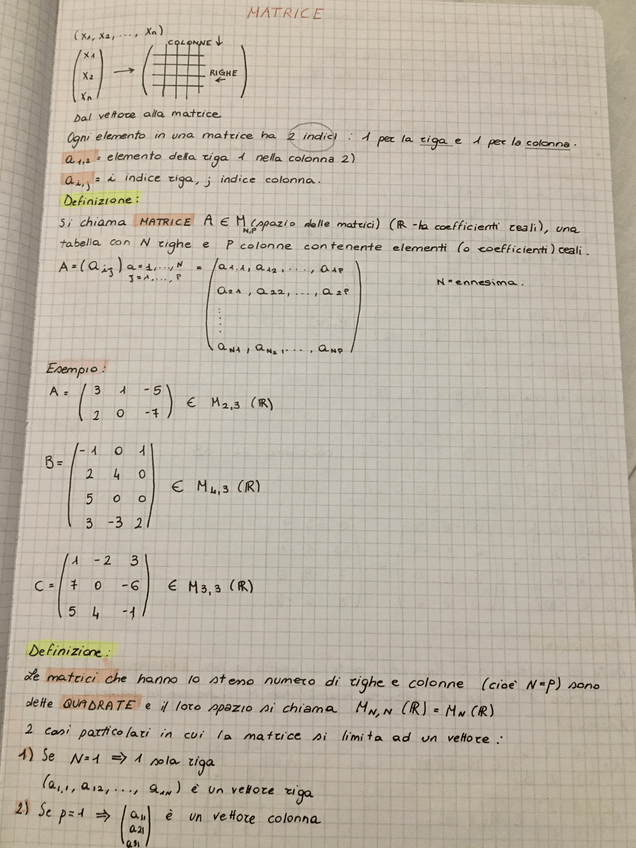 MATRICE
(x1, x2, ..., xn)
COLONNE ↓
x1
x2 → RIGHE ←
xn
Dal vettore alla matrice
Ogni elemento in una matrice ha 2 indici : 1 per la riga e 1 per la colonna.
a1,2 = elemento della riga 1 nella colonna 2)
ai,j = i indice riga, j indice colonna.
Definizione:
Si chiama MATRICE A ∈ M N,P (spazio delle matrici) (R - la coefficienti reali), una
tabella con N righe e P colonne contenente elementi (o coefficienti) reali.
A = (aij) a=1,..., N j=1,..., P = (a1,1, a12, ..., a1P
a21, a22, ..., a2P
N = ennesima.
⋮
aN1, aN2, ..., aNP)
Esempio:
A = ( 3 1 -5
2 0 -7 ) ∈ M2,3 (R)
B = ( -1 0 1
2 4 0
5 0 0 ∈ M4,3 (R)
3 -3 2 )
C = ( 1 -2 3
7 0 -6 ∈ M3,3 (R)
5 4 -1 )
Definizione:
Le matrici che hanno lo stesso numero di righe e colonne (cioè N=P) sono
dette QUADRATE e il loro spazio si chiama MN,N (R) = MN (R)
2 casi particolari in cui la matrice si limita ad un vettore :
1) Se N=1 ⇒ 1 sola riga
(a1,1, a12, ..., a1N) è un vettore riga
2) Se p=1 ⇒ (a11 è un vettore colonna
a21
a31